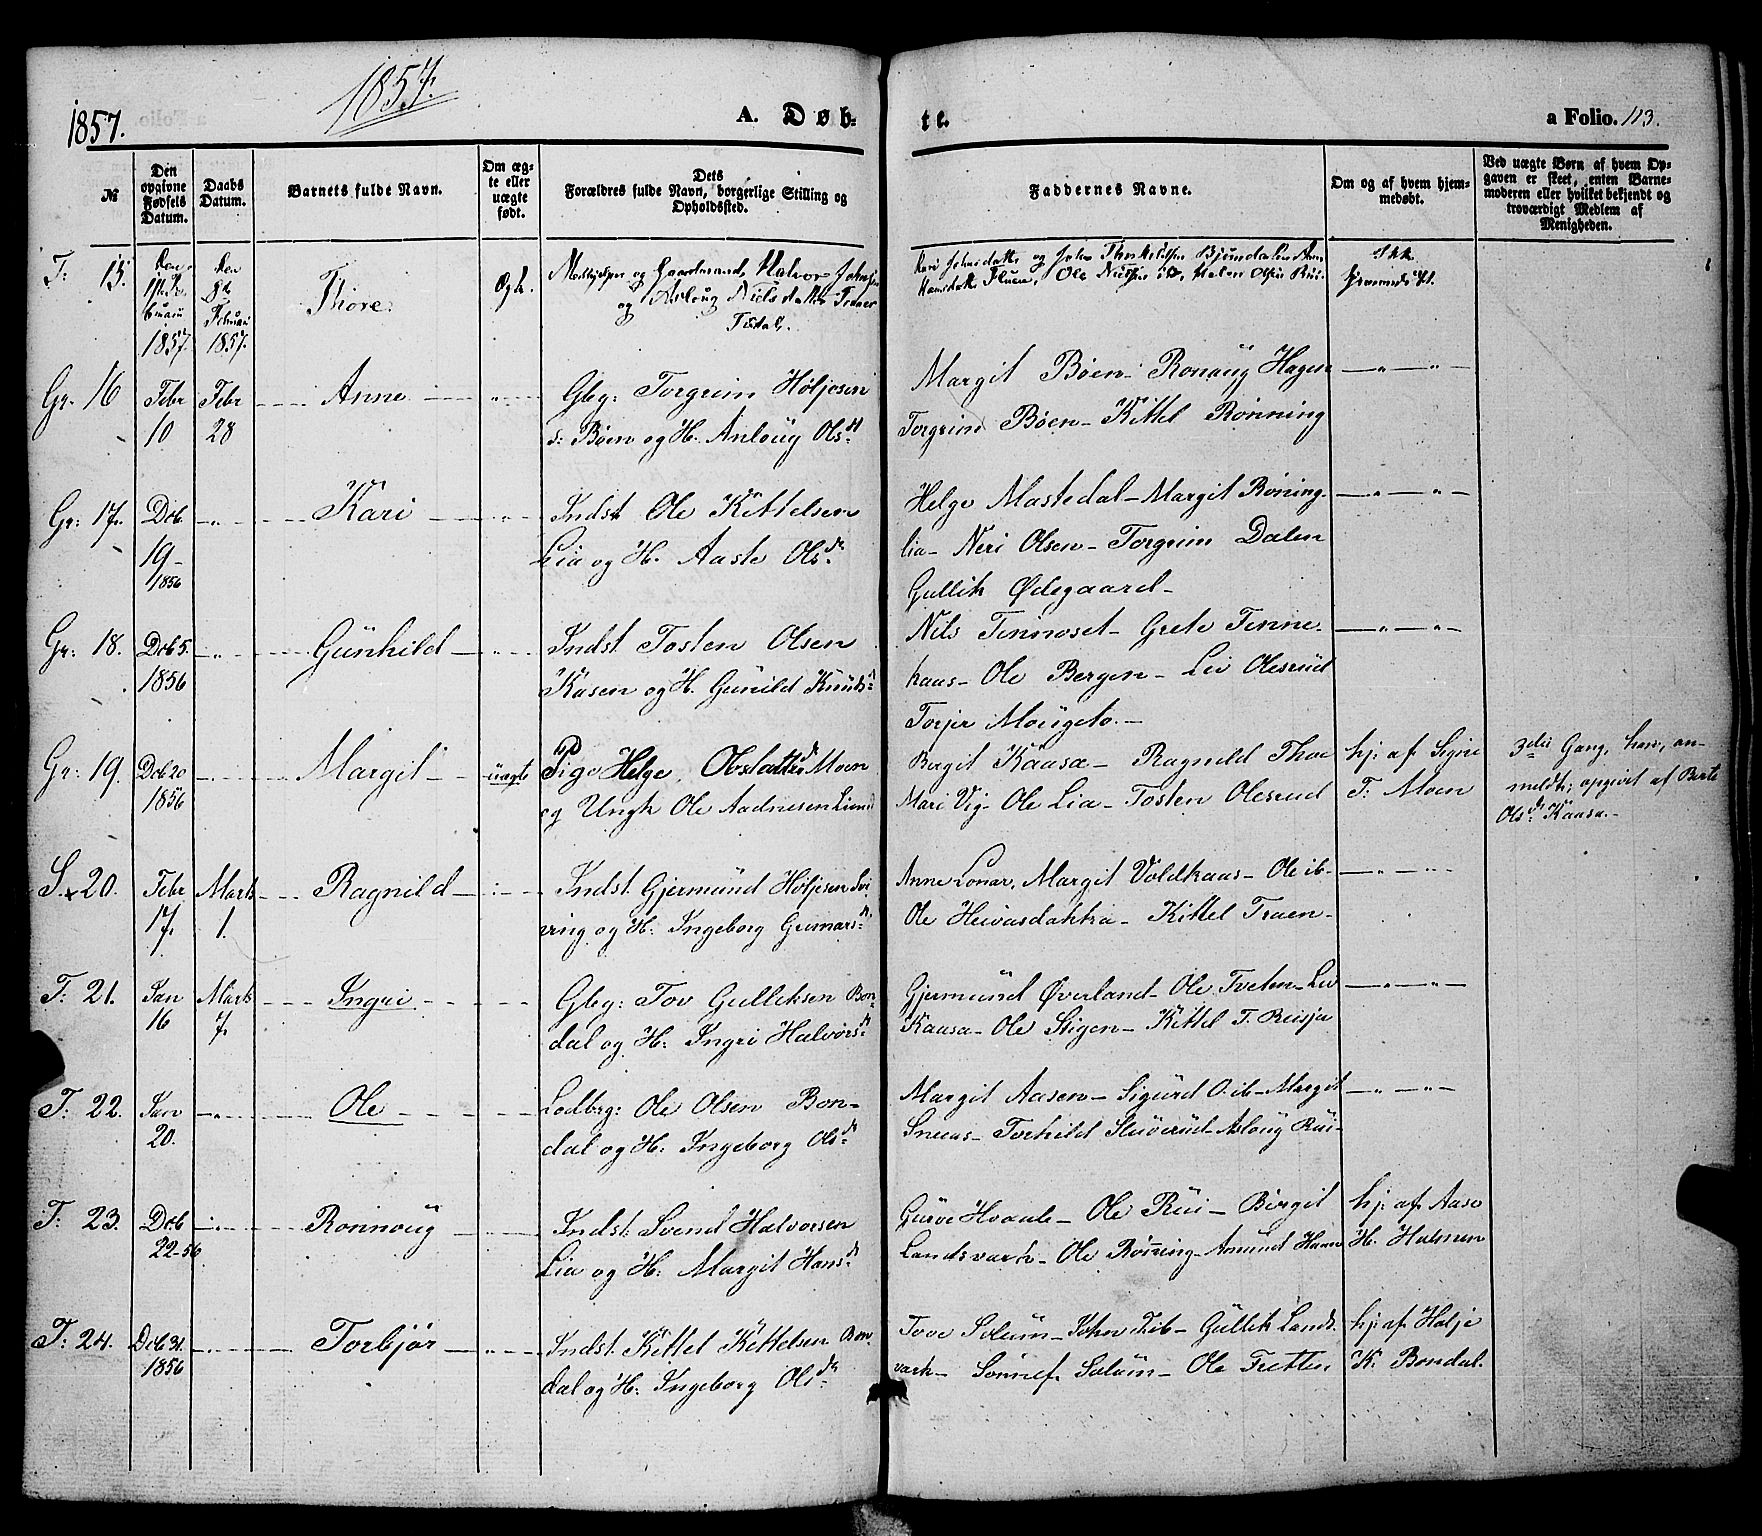 1857.
1857.
A. Døb-
te.
a Folio. 113.
№
Den opgivne Fødsels Datum.
Daabs Datum.
Barnets fulde Navn.
Om ægte eller uægte født.
Dets Forældres fulde Navn, borgerlige Stilling og Opholdssted.
Faddernes Navne.
Om og af hvem hjemmedøbt.
Ved uægte Børn af hvem Opgaven er skeet, enten Barnemoderen eller hvilket bekjendt og troværdigt Medlem af Menigheden.
T: 15. Den 1857. Den 8de Februari 1857. Thore Ægte. og Gaardmand, Halvor
og Aslaug Nielsdatter
Kari og John Bjørndalen
Ole
16 Gr. Febr 10 Febr 28 Anne Gbg: Torgrim Høljesen
s: Bøen og H. Anloug Olsdt
Margit Bøen - Ronoug Hagen
Torgrim Bøen - Kittel Rønning
Gr: 17. Dcb. 19 - 1856 Kari Indst Ole Kittelsen
Lia og H. Aaste Olsdr
Helge Mastedal - Margit Røning-
lia - Neri Olsen - Torgrim Dalen
Gullik Ødegaard -
Gr: 18. Dcb 5. 1856 Gunhild Indst Tosten Olsen
Kasen og H. Gunild Knuds
Nils Tinnoset - Grete Tinne-
haus - Ole Bergen - Liv Olesrud
Torjer Mougeto. -
Gr: 19. Dcb 20 1856 Margit uægte Pige Helge Moen
og Ungk Ole Aadnesen
Birgit Kaasa - Ragnild Thoe
Mari Vig - Ole Lia - Tosten Olesrud
hj: af Signe
T. Moen
3die Gang, han, an-
meldt; opgivet af Berte
Olsdr Kaasa. -
S. 20. Febr 17. Marts 1. Ragnild Indst. Gjermund Høljesen Svi
ving og H: Ingeborg Gumarsdt
Anne Lonar, Margit Voldhaas - Ole ib -
Ole - Kittel Traen -
T: 21. Jan 16 Marts 7. Ingri Gbg: Tov Gulleksen Bon-
dal og H: Ingri Halvorsdt
Gjermund Øverland - Ole Tveten - Liv
Kaasa - Ole Stigen - Kittel T. Rusja
T: 22. Jan 20. Ole Lodbrg: Ole Olsen Bon-
dal og H: Ingeborg Olsdr
Margit Aasen - Sigurd O. ib - Margit
- Torhild - Aslaug Rui -
T: 23. Dcb 22-56 Ronnoug Indst: Svend Halvorsen
Lia og H: Margit Hansdr
Gurve Hvaale - Ole Rui - Birgit
Landsvark - Ole Rønning - Amund
hj: af Aase
H. Holmen
T: 24. Dcb 31. 1856 Torbjør Indst: Kittel Kittelsen Bon-
dal og H: Ingeborg Olsdr
Tove Solum - John Lib - Gullik Lands-
vark - Solum - Ole Tretten
hj: af Holje
K. Bondal.